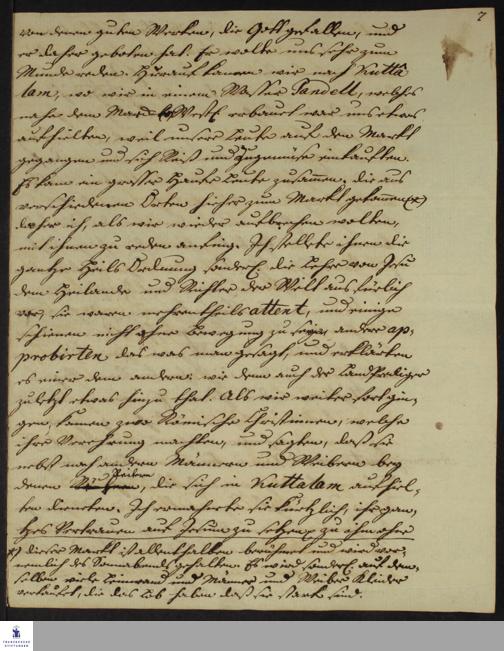 7
von denen guten Werken, die Gott gefallen, und
er daher geboten hat. Er wolte uns sehr zum
Munde reden. Hierauf kamen wir nach Kutta
lam, wo wir in einem Wasser Pandell, welches
nahe dem Marckt erbauet war uns etwas
aufhielten, weil unsere Leute auf den Markt
gegangen und sich Reiß und Zugemüse einkauften.
Es kam ein grosser Haufe Leute zusammen, die aus
verschiedenen Orten hieher zum Markt gekommen *)
daher ich, als wir wieder aufbrechen wolten,
mit ihnen zu reden anfing. Ich stellete ihnen die
gantze Heils Ordnung, sonderl. die Lehre von Jesu
dem Heilande und Richter der Welt ausführlich
vor, sie waren mehrentheils attent, und einige
schienen nicht ohne Bewegung zu seyn, andere ap-
probirten das was man gesagt, und erklärten
es einer dem andern; wie denn auch der Landprediger
zuletzt etwas hinzu that. Als wir weiter fortgin-
gen, kamen zwo Römische Christinnen, welche
ihre Verehrung machten, und sagten, daß sie
nebst noch andern Männern und Weibern bey
denen Reitern, die sich in Kuttalam aufhiel-
ten dieneten. Ich ermahnete sie kürtzlich, ihr gan-
tzes Vertrauen auf Jesum zu setzen, zu ihm ohne
*) dieser Markt ist allenthalben berühmt und wird vor-
nemlich des Sonnabends gehalten. Es wird sonderl. auf dem-
selben viele Leinwand und Männer und Weiber Kleider
verkauft, die das Lob haben daß sie starck sind.
FRANCKESCHE
STIFTUNGEN